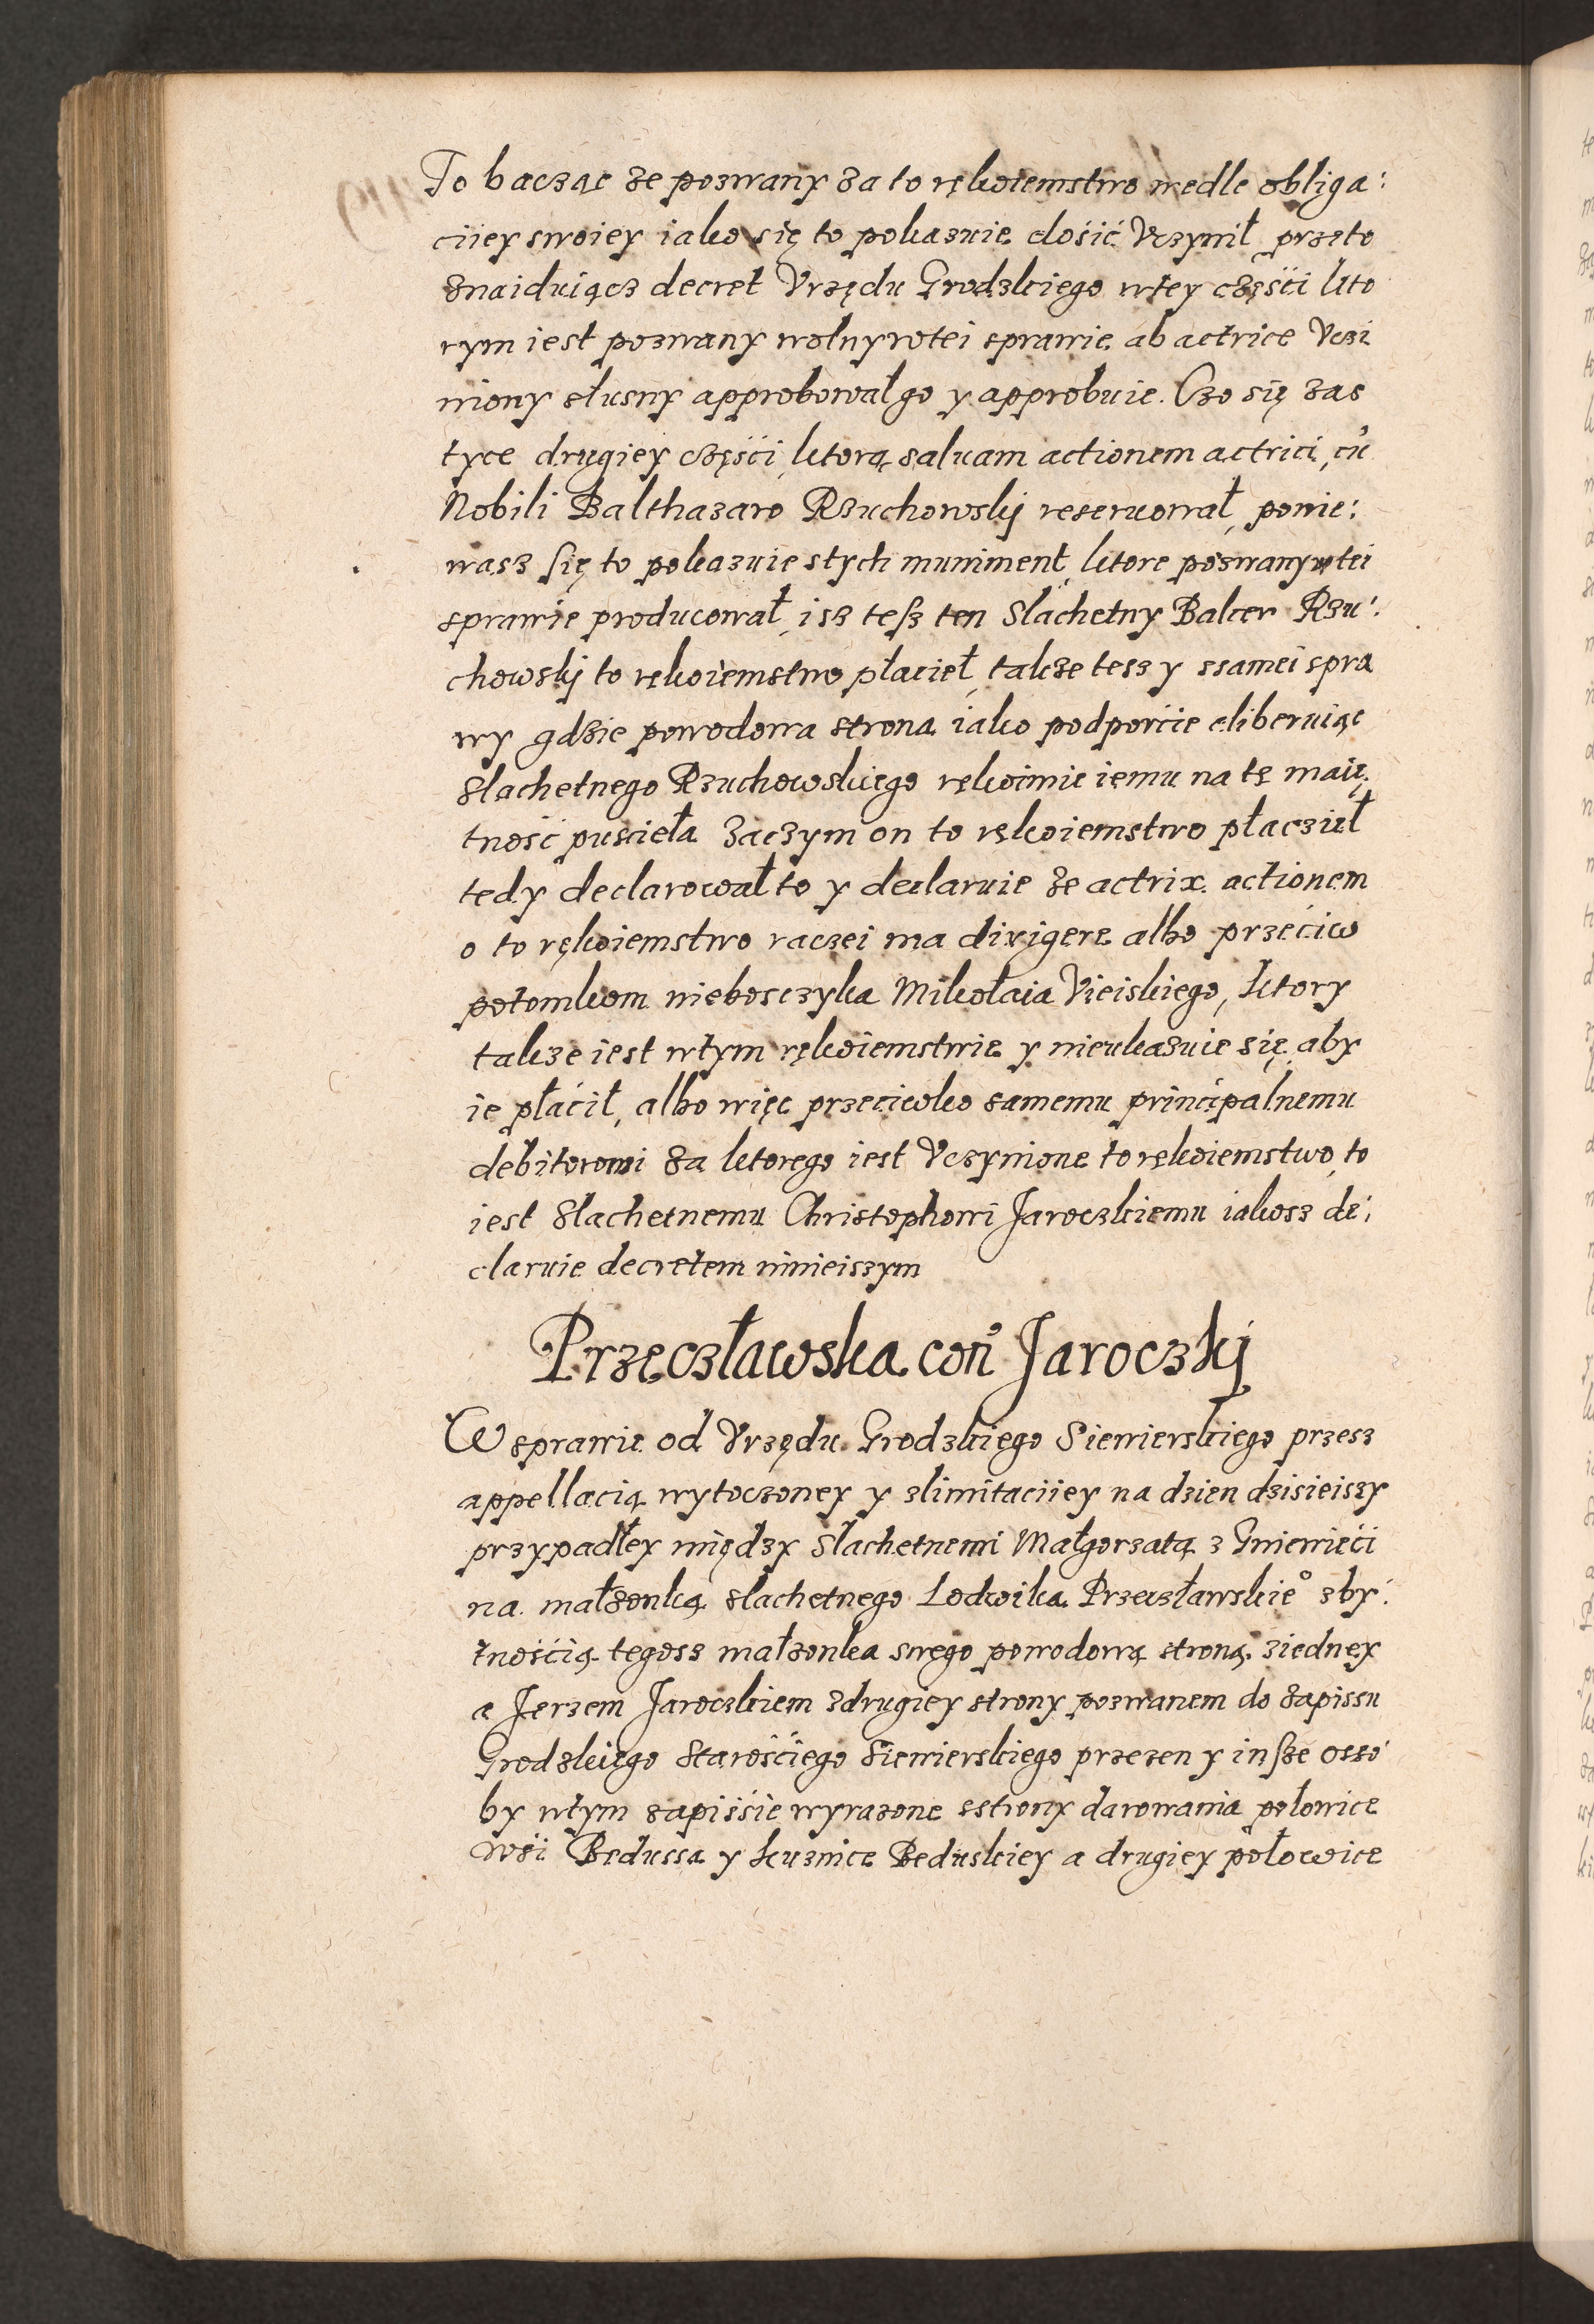 To bacząc ze pozwany za to rękoiemstwo wedle obliga:
ciiey swoiey iako się to pokazuie dośić Vczynił, przeto
znaiduiącz decret Vrzędu Grodzkiego wtey częśći kto
rym iest pozwany wolny wtei sprawie ab actrice Vczi
niony słusny approbował go y approbuie. Czo się zas
tyce drugiey częśći, ktorą saluam actionem actrici, cũ
Nobili Balthazaro Rzuchowskj reseruował, ponie:
wasz się to pokazuie stych muniment, ktore pozwany wtei
sprawie producował, isz tesz ten Slachetny Balcer Rzu:
chowskj to rękoiemstwo płacieł, takze tesz y ssamei spra
wy gdzie powodowa strona iako podporćie eliberuiąc
Slachetnego Rzuchowskiego rękoimie iemu na tę maię:
tność puscieła Zaczym on to rękoiemstwo płacziel
tedy declarował to y declaruie ze actrix actionem
o to rękoiemstwo raczei ma dirigere albo przećiw
potomkom niebosczyka Mikołaia Vieiskiego, ktory
takze iest wtym rękoiemstwie y nieukazuie się, aby
ie płacił, albo więc przeciwko samemu principalnemu
debitorowi za ktorego iest Vczynione to rękoiemstwo, to
iest Slachetnemu Christophowi Jaroczkiemu iakosz de:
claruie decretem ninieiszym
Przęczławska con̄ᵃ Jaroczkj
W sprawie od Vrzędu Grodzkiego Siewierskiego przesz
appellacią wytoczoney y zlimitaciiey na dzien dzisieiszy
przypadłey między Slachetnemi Małgorzatą z Gniewięći
na małzonką slachetnego Lodwika Przeczławskie° zby:
tnośćią tegosz małzonka swego powodową stroną ziedney
a Jerzem Jaroczkiem zdrugiey strony pozwanem do zapissu
Grodzkiego Starośćiego Siewierskiego przezen y insze osso
by wtym zapiśśie wyrazone sstrony darowania połowice
wśi Bedussa y kuznice Beduskiey a drugiey połowice